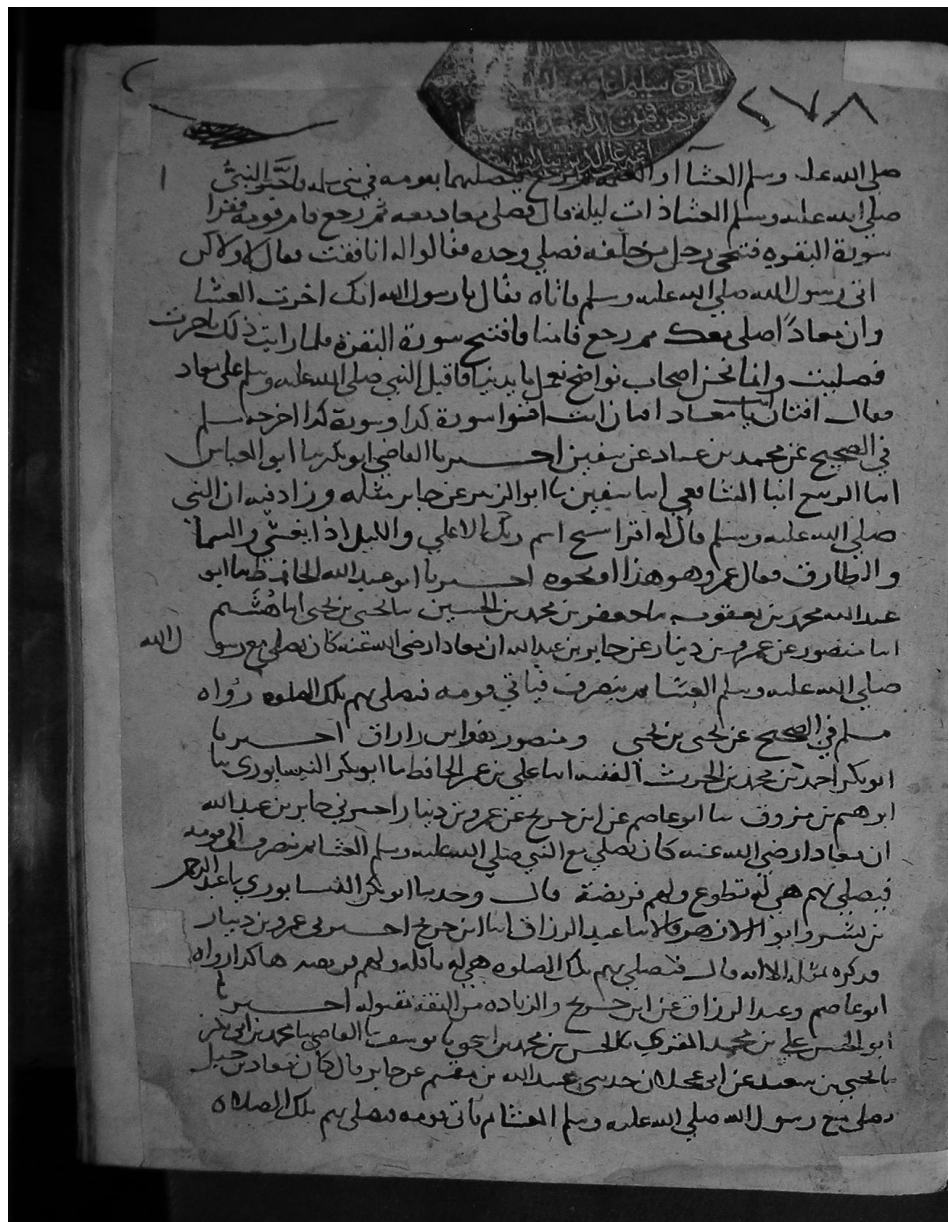 ٢٧٨
صلى الله عليه وسلم العشا او العتمه ثم يرجع فيصليها بقومه في بني سلمه فاخر النبي
صلى الله عليه وسلم العشا ذات ليلة قال فصلى معاذ معه ثم رجع فام قومه فقرا
سورة البقره فتنحى رجل من خلفه فصلى وحده فقالوا له انافقت فقال لا ولاكن
اتي رسول الله صلى الله عليه وسلم فاتاه فقال يا رسول الله انك اخرت العشا
وان معاذا صلى معك ثم رجع فامنا فافتتح سورة البقرة فلما رايت ذلك تاخرت
فصليت وانما نحن اصحاب نواضح نعمل بايدينا فاقبل النبي صلى الله عليه وسلم على معاذ
فقال افتان يا معاذ افتان انت اقرا سورة كذا وسورة كذا اخرجه مسلم
في الصحيح عن محمد بن عباد عن سفين اخبرنا القاضي ابو بكر نا ابو العباس
انا الربيع انبا الشافعي انا سفين نا ابو الزبير عن جابر مثله وزاد فيه ان النبي
صلى الله عليه وسلم قال له اقرا سبح اسم ربك الاعلى والليل اذا يغشى والسما
والطارق فقال عمرو هو هذا او نحوه اخبرنا ابو عبد الله الحافظ نا ابو
عبد الله محمد بن يعقوب نا جعفر بن محمد بن الحسين نا يحيى بن يحيى انا هُشَيم
انا منصور عن عمرو بن دينار عن جابر بن عبد الله ان معاذا رضي الله عنه كان يصلي مع رسول الله
صلى الله عليه وسلم العشا ثم ينصرف فياتي قومه فيصلي بهم تلك الصلوه رواه
مسلم في الصحيح عن يحيى بن يحيى ومنصور هو ابن زاذان اخبرنا
ابو بكر احمد بن محمد بن الحرث الفقيه انا علي بن عمر الحافظ نا ابو بكر النيسابوري نا
ابرهيم بن مرزوق نا ابو عاصم عن ابن جريج عن عمرو بن دينار اخبرني جابر بن عبد الله
ان معاذا رضي الله عنه كان يصلي مع النبي صلى الله عليه وسلم العشا ثم ينصرف الى قومه
فيصلي بهم هي له تطوع ولهم فريضة قال وحدثنا ابو بكر النيسابوري نا عبد الرحمن
بن بشر وابو الازهر قالا نا عبد الرزاق انا ابن جريج اخبرني عمرو بن دينار
فذكره بمثله الا انه قال فيصلي بهم تلك الصلوه هي له نافله ولهم فريضه هاكذا رواه
ابو عاصم وعبد الرزاق عن ابن جريج والزياده من الثقة مقبوله اخبرنا
ابو الحسن علي بن محمد المقري نا الحسن بن محمد بن اسحق نا يوسف نا القاضي نا محمد بن ابي بكر
نا يحيى بن سعيد عن ابن عجلان حدثني عبيد الله بن مقسم عن جابر قال كان معاذ بن جبل
يصلي مع رسول الله صلى الله عليه وسلم العشا ثم ياتي قومه فيصلي بهم تلك الصلاة